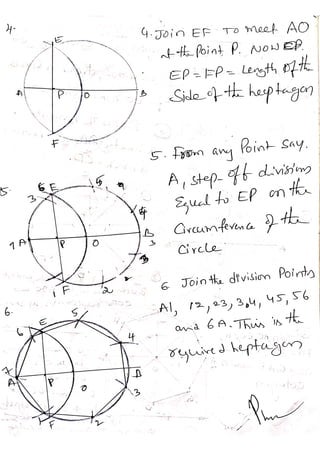 4.
E
A
P
O
B
F
4. Join EF To meet AO
at the Point P. NOW EP.
EP = FP = Length of the
Side of the heptagon
5.
6 E
5
4
3
A
P
O
B
3
1 F
2
5. From any Point say.
A, step off divisions
Equal to EP on the
Circumference of the
Circle
6.
6
E
5
4
7
A
P
O
B
3
1
F
2
6 Join the division Points
A1, 12, 23, 34, 45, 56
and 6A. This is the
required heptagon